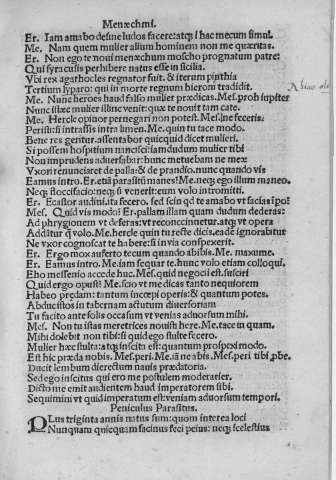 Menæchmi.
Er. Iam amabo desine ludos facere: atq; i hac mecum simul.
Me. Nam quem mulier alium hominem non me quæritas.
Er. Non ego te noui menæchmum moscho prognatum patre:
Qui syracusis perhibere natus esse in sicilia.
Vbi rex agathocles regnator fuit. & iterum pinthia
Tertium lyparo: qui in morte regnum hieroni tradidit.
Me. Nunc hieros haud falso mulier prædicas. Mes. proh iupiter
Nunc illæc mulier illinc uenit: quæ te nouit tam cate.
Me. Hercle opinor pernegari non potest. Mes. ne feceris.
Periisti: si intrassis intra limen. Me. quin tu tace modo.
Bene res geritur. assentabor quicquid dicet mulieri.
Si possem hospitium nancisci: iamdudum mulier tibi
Non imprudens aduersabar: hunc metuebam ne meæ
Vxori renunciaret de palla: & de prandio. nunc quando uis
Eamus intro. Er. etiã parasitũ manes? Me. neq; ego illum maneo.
Neq; floccifacio: neq; si uenerit: eum uolo intromitti.
Er. Ecastor audiui. ita fecero. sed scin qd te amabo ut facias? ipo?
Mes. Quid uis modo? Er. pallam illam quam dudum dederas:
Ad phrygionem ut deferas: ut reconcinnetur. atq; ut opera
Additur q̃ uolo. Me. hercle quin tu recte dicis. eade ignorabitur
Ne uxor cognoscat te habere: si in uia conspexerit.
Er. Ergo mox auferto tecum quando abibis. Me. maxume.
Er. Eamus intro. Me. iam sequar te. hunc uolo etiam colloqui.
Eho messenio accede huc. Mes. quid negoci est. susciri
Quid ergo opus est? Me. scio ut me dicas tanto nequiorem
Habeo prædam: tantum incœpi operis: & quantum potes.
Abducistos in tabernam actutum diuersoriam
Tu facito ante solis occasum ut uenias aduorsum mihi.
Mes. Non tu istas meretrices nouisti here. Me. tace in quam.
Mihi dolebit non tibi: si quid ego stulte fecero.
Mulier hæc stulta: atq; inscita est: quantum prospexi modo.
Est hic præda nobis. Mes. peri. Me. iã ne abis. Mes. peri tibi pbe.
Ducit lembum dierectum nauis prædatoria.
Sed ego inscitus qui ero me postulem moderarier.
Dicto me emit audientem haud imperatorem sibi.
Sequimini ut quid imperatum est: ueniam aduorsum tempori.
Peniculus Parasitus.
PLus triginta annis natus sum: quom interea loci
Nunquam quicquam facinus feci peius: neq; scelestius